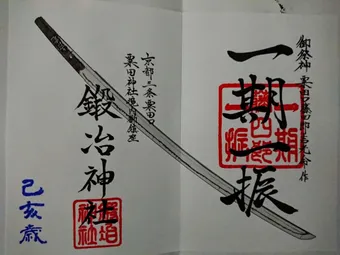 御祭神 粟田口藤四郎吉光 作
一期一振
一期一振
京都三条粟田口
粟田神社境内鎮座
鍛冶神社
鍛冶神社
己亥歳